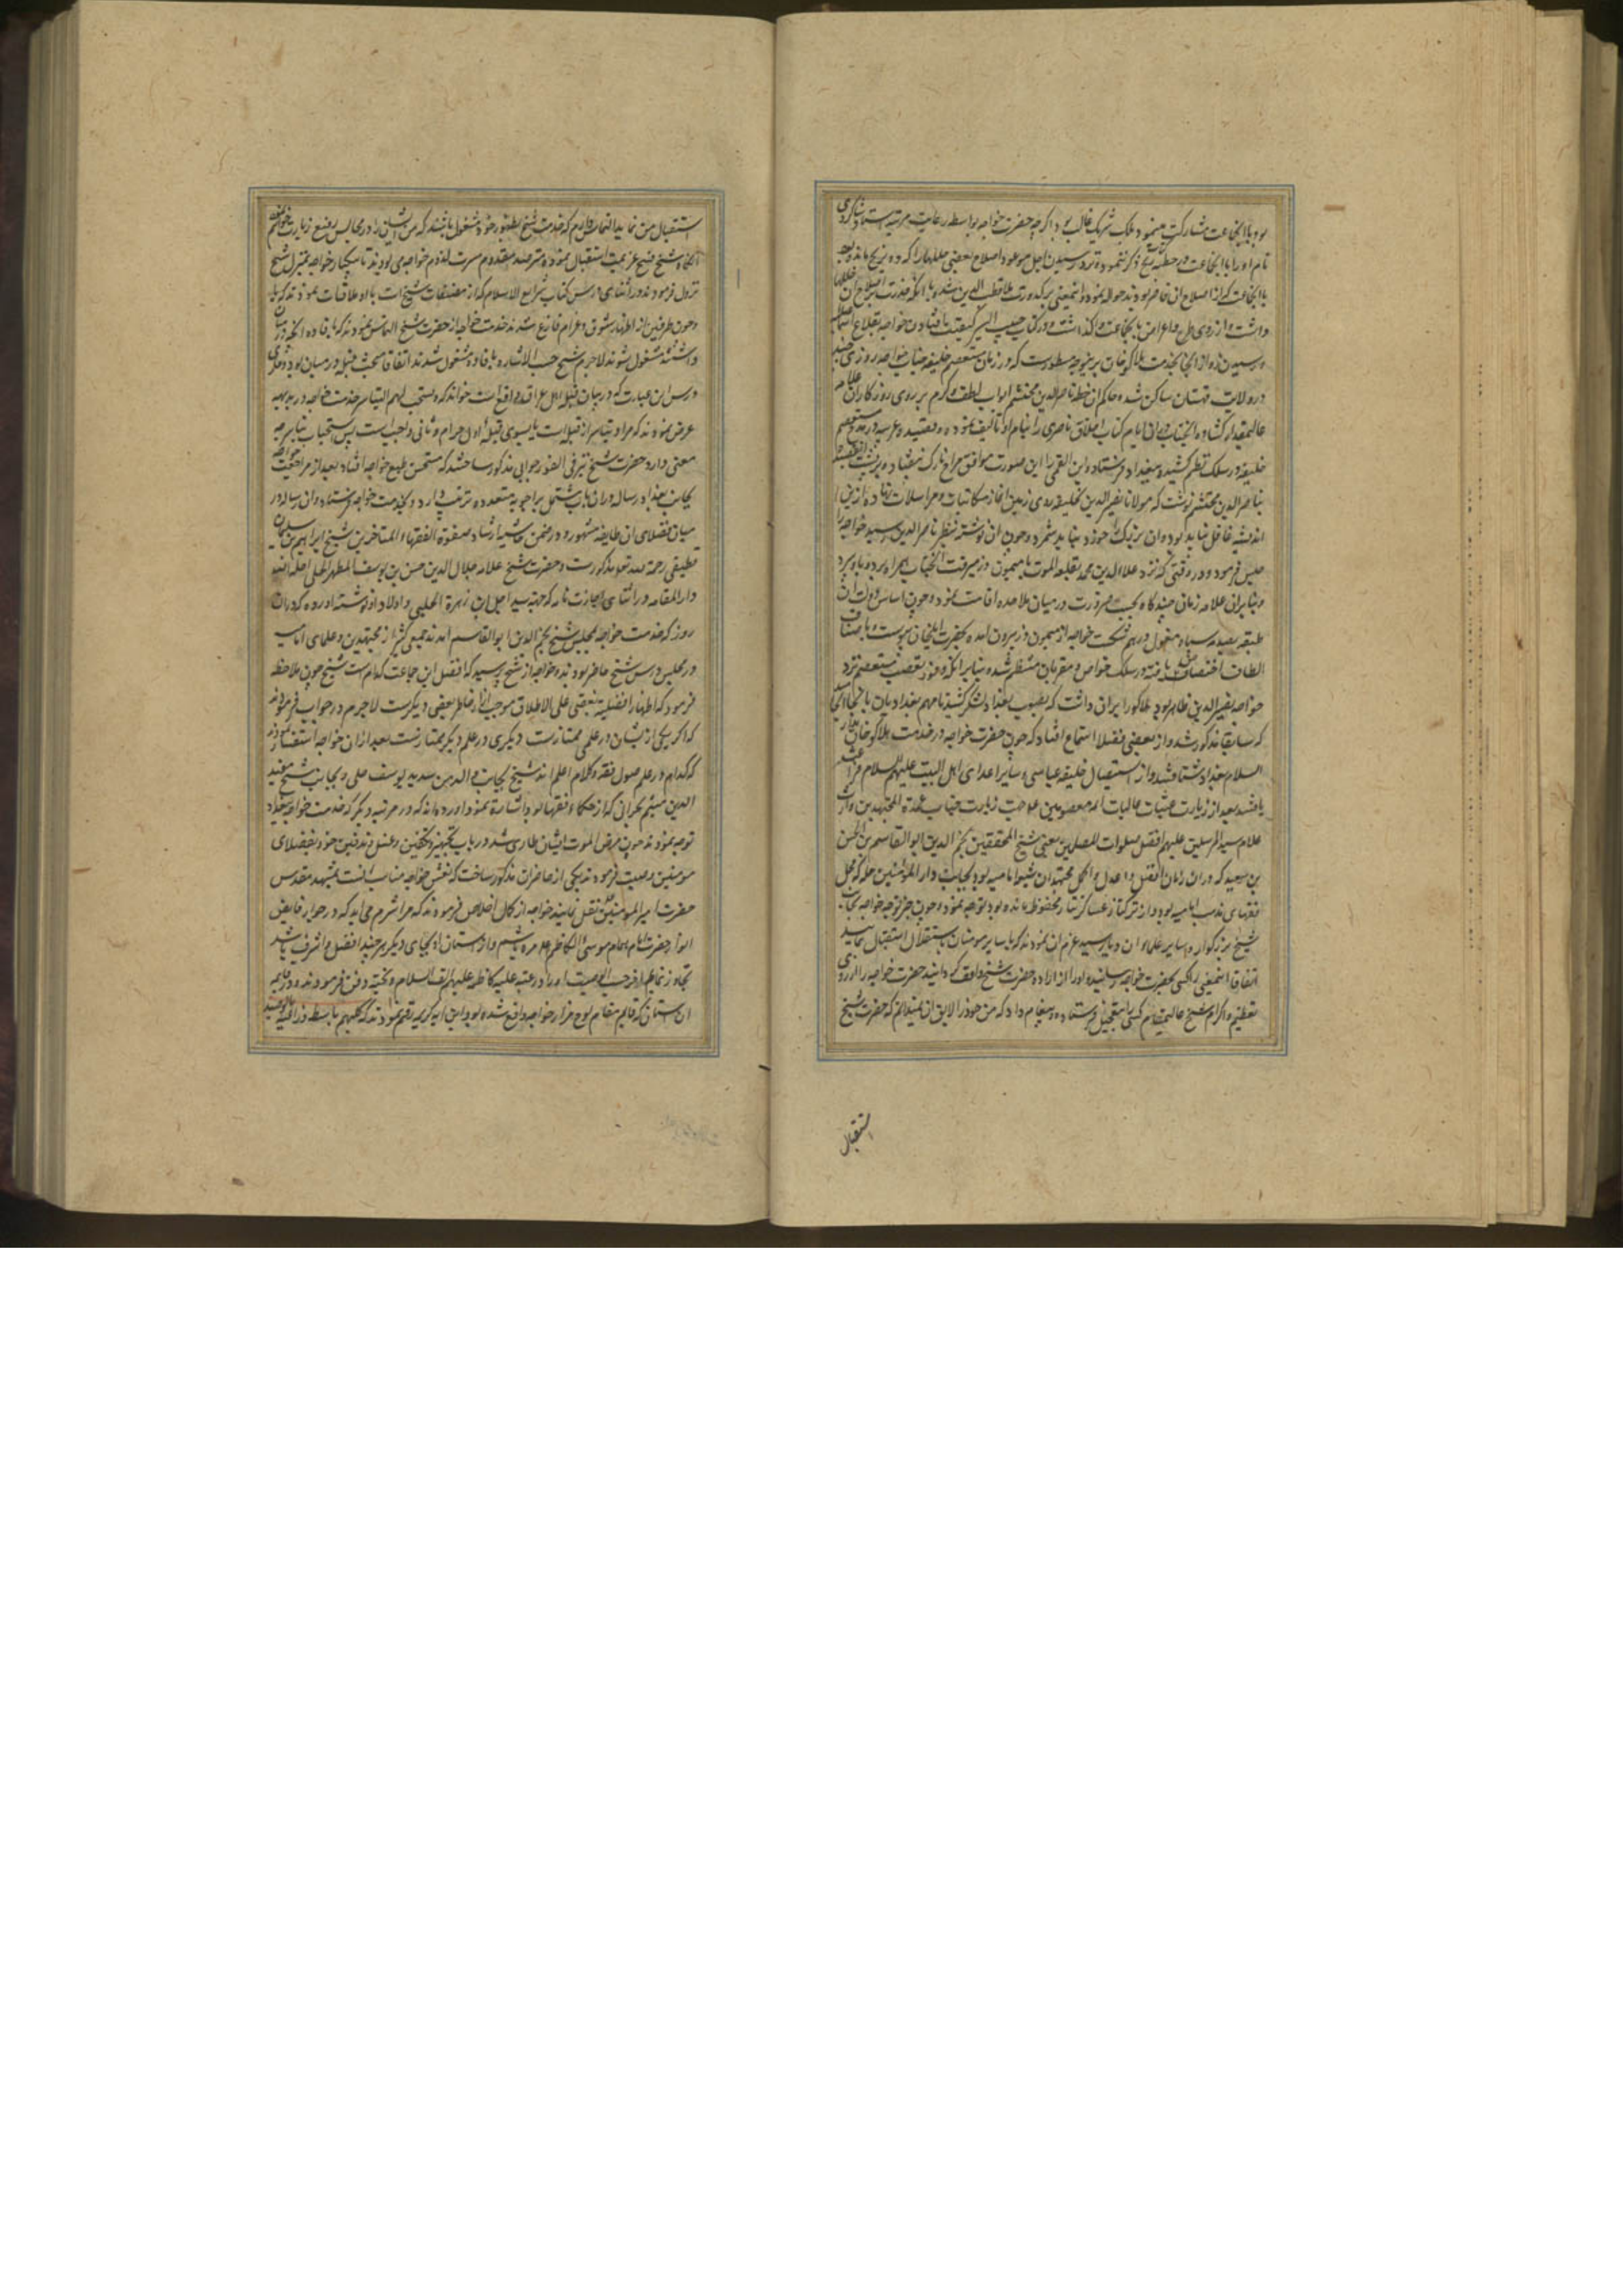 بود با انجماعت مشارکت مینمود و ملک شریک غالب بود و اگرچه حضرت خواجه بواسطه رعایت مرتبه استاد شاکردی
نام او را با انجماعت در خطبه زیج ذکر ننموده نزد رسیدن اجل موعود اصلاح بعضی خللها را که در زیج مانده بود
با انجماعت که از اصلاح ان قاصر بودند حواله نموده و اینمعنی بر کدورت ملا قطب الدین شده با انکه قدرت بر اصلاح ان خللها
داشت از روی اعراض با انجماعت وا کذاشت و در کتاب حبیب السیر کیفیت افتادن خواجه بقلاع
و رسیدن او از انجا بخدمت هلاکو خان برینوجه مسطورست که در زمان مستعصم خلیفه جناب خواجه روزی چند
در ولایت قهستان ساکن شده حاکم ان خطه ناصر الدین محتشم ابواب لطف و کرم بر روی روزکار ان
عالیمقدار کشاده انجناب در ان ایام کتاب اخلاق ناصری را بنام او تالیف نموده و قصیده عربیه در مدح مستعصم
خلیفه در سلک نظم کشیده ببغداد فرستاد و ابن العلقمی را این صورت موافق مزاج نازک نیفتاد و بر پشت ان قصیده
بناصر الدین محتشم نوشت که مولانا نصیر الدین بخلیفه روی زمین اغاز مکاتبات و مراسلات نهاده ازین
اندیشه غافل نباید بود و ان بزرک را خورد نباید شمرد و چون ان نوشته بنظر ناصر الدین رسید خواجه را
حبس فرمود و در وقتی که نزد علاء الدین محمد بقلعه الموت یا میمون دز میرفت انجناب را همراه برده باو سپرد
و بنابران علامه زمان چند کاه بحسب ضرورت در میان ملاحده اقامت نمود و چون اساس دولت ان
طبقه بصدمه سپاه مغول درهم شکست خواجه از میمون دز بیرون امده بحضرت ایلخان پیوست و باصناف
الطاف اختصاص یافته در سلک خواص و مقربان منتظم شد و بنابر انکه وفور تعصب مستعصم نزد
خواجه نصیر الدین ظاهر بود هلاکو را بران داشت که بصوب بغداد لشکر کشید تا مهم بغدادیان بانجا انجامید
که سابقا مذکور شد و از بعضی فضلا استماع افتاد که چون حضرت خواجه در خدمت هلاکو خان بدار
السلام بغداد شتافتند و از استیصال خلیفه عباسی و سایر اعدای اهل البیت علیهم السلام فراغت
یافتند بعد از زیارت عتبات عالیات ائمه معصومین صلوات زیارت جناب عمدة المجتهدین وارث
علوم سید المرسلین علیهم افضل صلوات المصلین یعنی شیخ المحققین نجم الدین ابو القاسم بن الحسن
بن سعید که در ان زمان افضل و اعدل و اکمل مجتهدان شیعه امامیه بود بجانب دار المؤمنین حله که محل
فقهای مذهب امامیه بود و از ترکتاز عساکر تتار محفوظ مانده بود توجه نمود و چون خبر توجه خواجه بجناب
شیخ بزرکوار و سایر علماء ان دیار رسید عزم ان نمودند که با سایر مومنان باستقلال استقبال نمایند
اتفاقا اینمعنی را کسی بحضرت خواجه رسانید و او را از اراده حضرت شیخ واقف کردانید حضرت خواجه را از روی
تعظیم و اکرام شیخ عالیمقام کسی را بتعجیل فرستاده پیغام داد که من خود را لایق ان نمیدانم که حضرت شیخ
استقبال
استقبال من نماید التماس دارم که خدمت شیخ بطور خود مشغول باشند که من ایشان را در مجالس رفیع زیارت خواهم نمود
انکاه شیخ فسخ عزیمت استقبال نموده مترصد مقدم مسرت لزوم خواجه می بودند تا یکبار خواجه بمنزل شیخ
نزول فرمودند و در اثنای درس کتاب شرایع الاسلام که از مصنفات شیخ است با او ملاقات نمودند
و چون طرفین از اظهار شوق و غرام فارغ شدند خدمت خواجه از حضرت شیخ التماس نمودند که بافاده انچه در میان
داشتند مشغول شوند لاجرم شیخ حسب الاشاره بافاده مشغول شدند اتفاقا مبحث قبله در میان بود
درس این عبارت که در بیان قبله اهل عراق واقع است خواند که و یستحب لهم التیاسر خدمت خواجه در بدیهه
عرض نمودند که مراد تیاسر از قبله است یا بسوی قبله اول حرام و ثانی واجبست پس استحباب تیاسر چه
معنی دارد حضرت شیخ نیز فی الفور جوابی مذکور ساختند که مستحسن طبع خواجه افتاد و بعد از مراجعت خواجه
بجانب بغداد رساله در ان باب مشتمل بر اجوبه متعدده ترتیب داده بخدمت خواجه فرستاد و ان رساله در
میان فضلای ان طایفه مشهور و در ضمن حاشیه ارشاد صفوة الفقهاء المتاخرین شیخ ابراهیم بن سلیمان
قطیفی رحمه الله تعالی مذکورست و حضرت شیخ علامه جمال الدین حسن بن یوسف المطهر الحلی احله الله
دار المقامه در اثنای اجازت نامه که جهته سید اجل ابن زهرة الحلبی و اولاد او نوشته اورده که در ان
روز که خدمت خواجه بمجلس شیخ نجم الدین ابو القاسم امدند جمعی کثیر از مجتهدین و علمای امامیه
در مجلس درس شیخ حاضر بودند خواجه از شیخ پرسید که افضل این جماعت کدام است شیخ چون ملاحظه
فرمود که اظهار افضلیت بعضی علی الاطلاق موجب ازار خاطر بعضی دیکرست لاجرم در جواب فرمودند
که اکر یکی از ایشان در علمی ممتازست دیکری در علم دیکر ممتازست بعد از ان خواجه استفسار نمودند
که کدام در علم اصول فقه و کلام اعلم اند شیخ بجانب والد من سدید یوسف حلی و بجانب شیخ مفید
الدین میثم بحرانی که از حکماء و فقها بود اشاره نمود و اورده اند که در مرتبه دیکر که خدمت خواجه ببغداد
توجه نمودند چون مرض الموت ایشان طاری شد در باب تجهیز و تکفین و غسل و تدفین خود بفضلای
مومنین وصیت فرمودند یکی از حاضران مذکور ساخت که نعش خواجه مناب انست بمشهد مقدس
حضرت امیر المومنین نقل نمایند خواجه از کمال اخلاص فرمودند که مرا شرم می اید که در جوار فایض
الانوار حضرت امام همام موسی الکاظم مرده باشم و از استان او بجای دیکر هر چند افضل و اشرف باشد
تجاوز نمایم اخر حسب الوصیت او را در عتبه علیه کاظمه علیهم السلام و التحیه دفن فرمودند و در
ان استان که قایم مقام لوح مزار خواجه واقع شده بود این ایه کریمه رقم نمودند که کلبهم باسط ذراعیه بالوصید